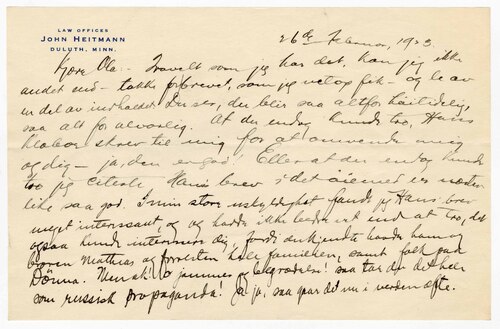 LAW OFFICES
JOHN HEITMANN
DULUTH, MINN.
26de Februar, 1923.
Kjære Ola:- Travelt som jeg har det, kan jeg ikke
andet end takke for brevet, som jeg netop fik - og le av
en del av indholdet. Du ser, du blir saa altfor høitidelig,
saa alt for alvorlig. At du endog kunde tro, Hans
skrev til mig for at anvende mig
og dig - ja, den er god! Eller at du endog kunde
tro jeg citerte Hans' brev i det øiemed er næsten
like saa god. I min store uskyldighet fandt jeg Hans' brev
meget interssant, og jeg hadde ikke bedre vet end at tro, det
ogsaa kunde interessere dig, fordi du kjendte baade ham og
broren Mathias og forresten hele familien, samt folk paa
Dönna. Men ak! O jammer og saa tar du det hele
som russisk propaganda! Ja ja, saa gaar det nu i verden ofte.